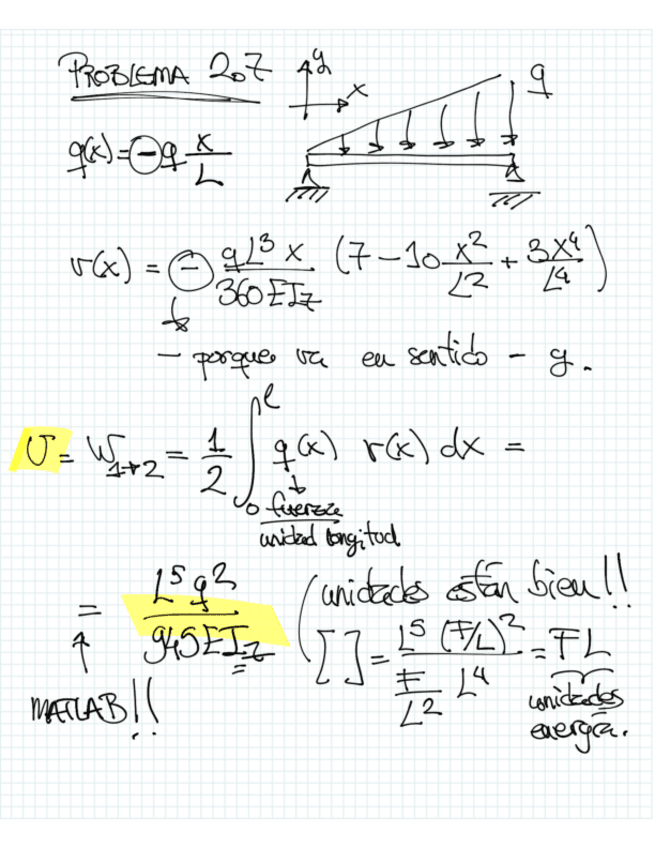 PROBLEMA 2.7
y
x
q
q(x) = - q x/L
v(x) = - qL³x/360EIz (7 - 10 x²/L² + 3x⁴/L⁴)
- porque va en sentido - y.
U = W1→2 = 1/2 ∫₀ˡ q(x) v(x) dx =
fuerza
unidad longitud
= L⁵q²/945EIz (unidades están bien!!
[ ] = L⁵ (F/L)²/(F/L² L⁴) = FL
MATLAB!!
unidades
energía.